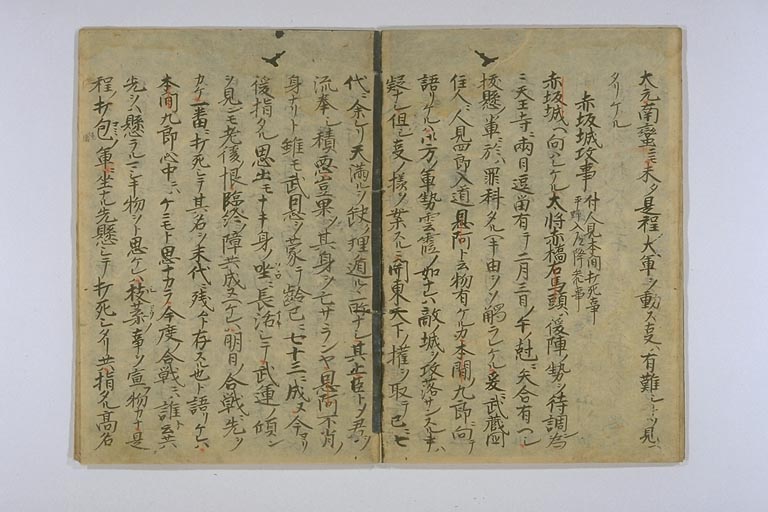 大元南蛮ニモ未タ是程ノ大軍ヲ動ス支ハ有難シトソ見ヘ
タリケル
赤坂城攻事 付人見本間打死事
平野入道降参事
赤坂城ヘ向ハレケル大将赤橋右馬頭ハ後陣ノ勢ヲ待調為
ニ天王寺ニ両日逗留有テ二月三日ノ午ノ尅ニ矢合有ヘシ
抜懸ノ軍ニ於ハ罪科タルヘキ由ヲソ觸ラレケル爰ニ武蔵国
住人ニ人見四郎入道恩阿ト云物有ケルカ本間九郎ニ向テ
語リケルハ御方ノ軍勢雲霞ノ如ナレハ敵ノ城ヲ攻落サンスル事ハ
疑ナシ但シ支ノ様ヲ案スルニ関東天下ノ権ヲ取テ已ニ七
代ニ余レリ天満ルヲ缺ク理遁ルニ所ナシ其上臣トシテ君ヲ
流奉シ積悪豈果シテ其身ヲ亡サランヤ恩阿不肖ノ
身ナリト雖モ武恩ヲ蒙テ齢已ニ七十三ニ成ヌ今ヨリ
後指タル思出モナキ身ノ坐ニ長活シテ武運ノ傾ン
ヲ見ンモ老後ノ恨臨終ノ障共成ヌヘケレハ明日ノ合戦ニ先ヲ
カケ一番ニ打死シテ其名ヲ末代ニ残ムト存スル也ト語リケレハ
本間九郎心中ニハケニモト思ナカラ今度ノ合戦ニハ誰云共
先ヲハ懸ラルマシキ物ヲト思ケレハ枝葉ノ事ヲ宣フ物カナ是
程ノ打包軍ニ坐先懸シテ打死シタリ共指タル高名